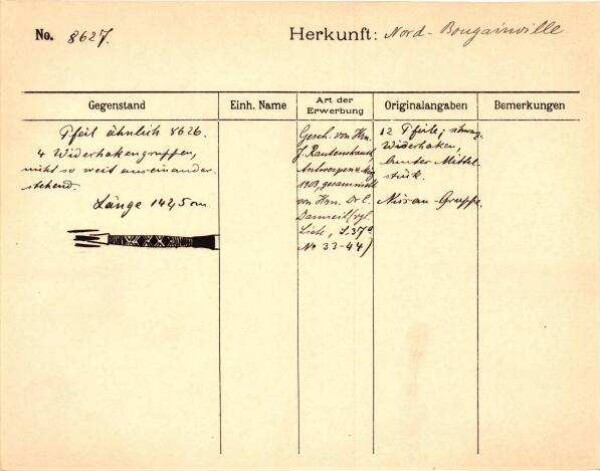 No. 8627. Herkunft: Nord-Bougainville
Gegenstand Einh. Name Art der Erwerbung Originalangaben Bemerkungen
Pfeil ähnlich 8626.
4 Widerhakengruppen,
nicht so weit auseinander-
stehend.
Länge 142,5 cm
Gesch. von Hrn.
J. Rautenstrauch,
Antwerpen
1903, gesammelt
von Hrn. Dr. E.
(vgl.
Liste, S. 37
No 33-44)
12 Pfeile; schwarz.
Widerhaken,
bunter Mittel-
stück.
Nissan-Gruppe.